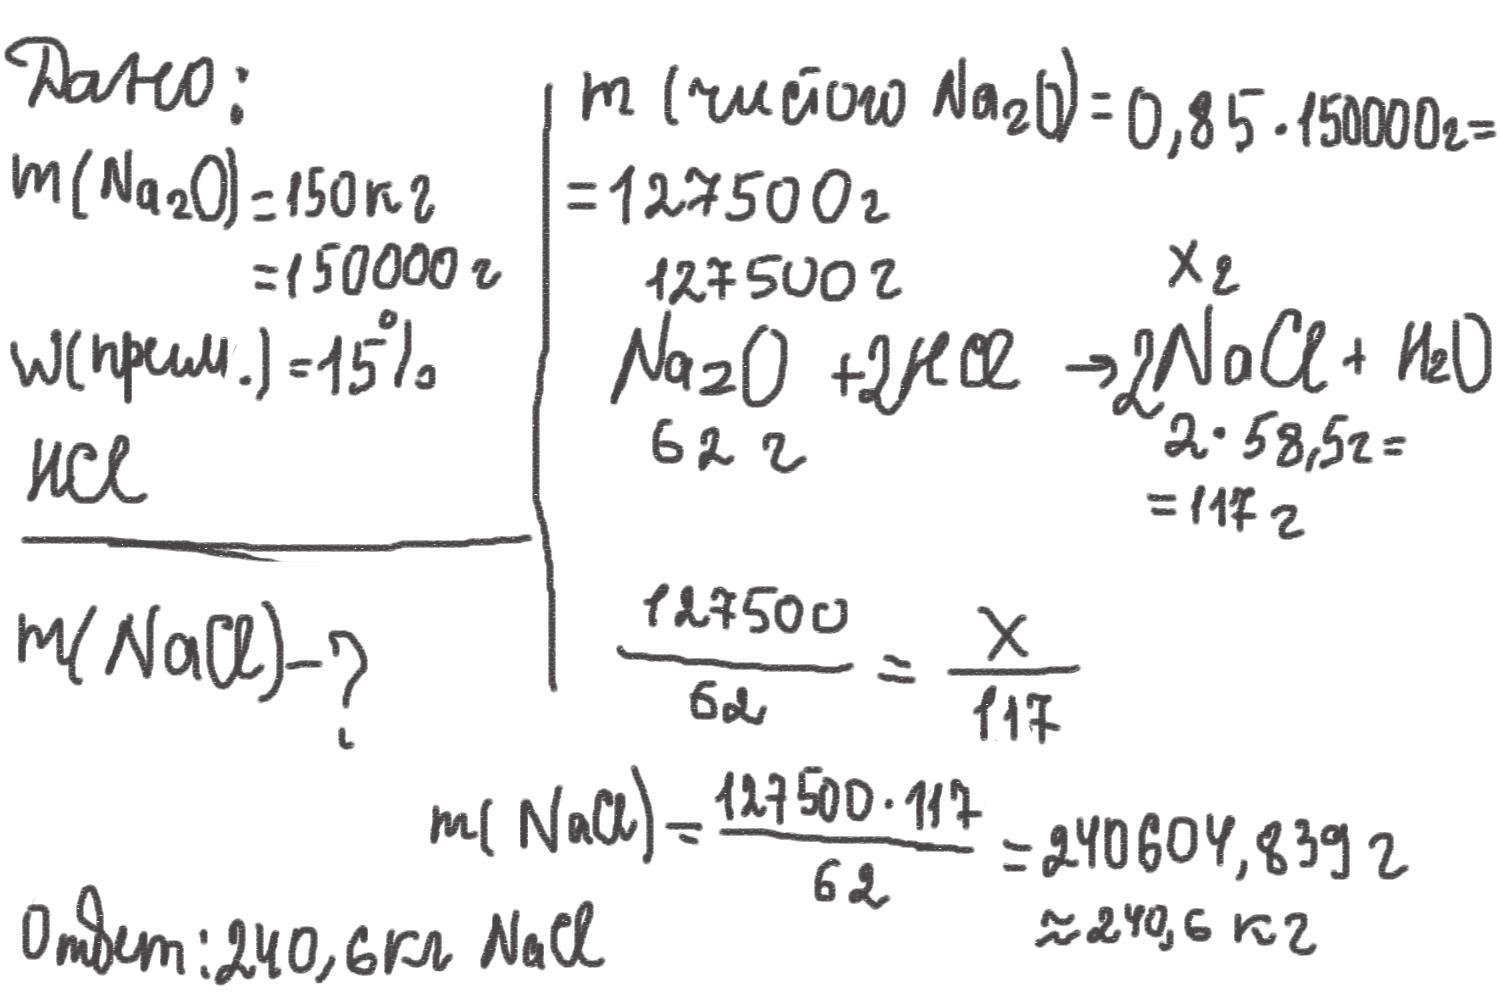 Дано:
m(Na₂O)=150кг
=150000г
w(прим.)=15%
HCl
m(NaCl)-?
m(чистого Na₂O)=0,85·150000г=
=127500г
127500г xг
Na₂O +2HCl →2NaCl + H₂O
62г 2·58,5г=
=117г
127500/62 = x/117
m(NaCl)=127500·117/62=240604,839г
≈240,6 кг
Ответ:240,6кг NaCl